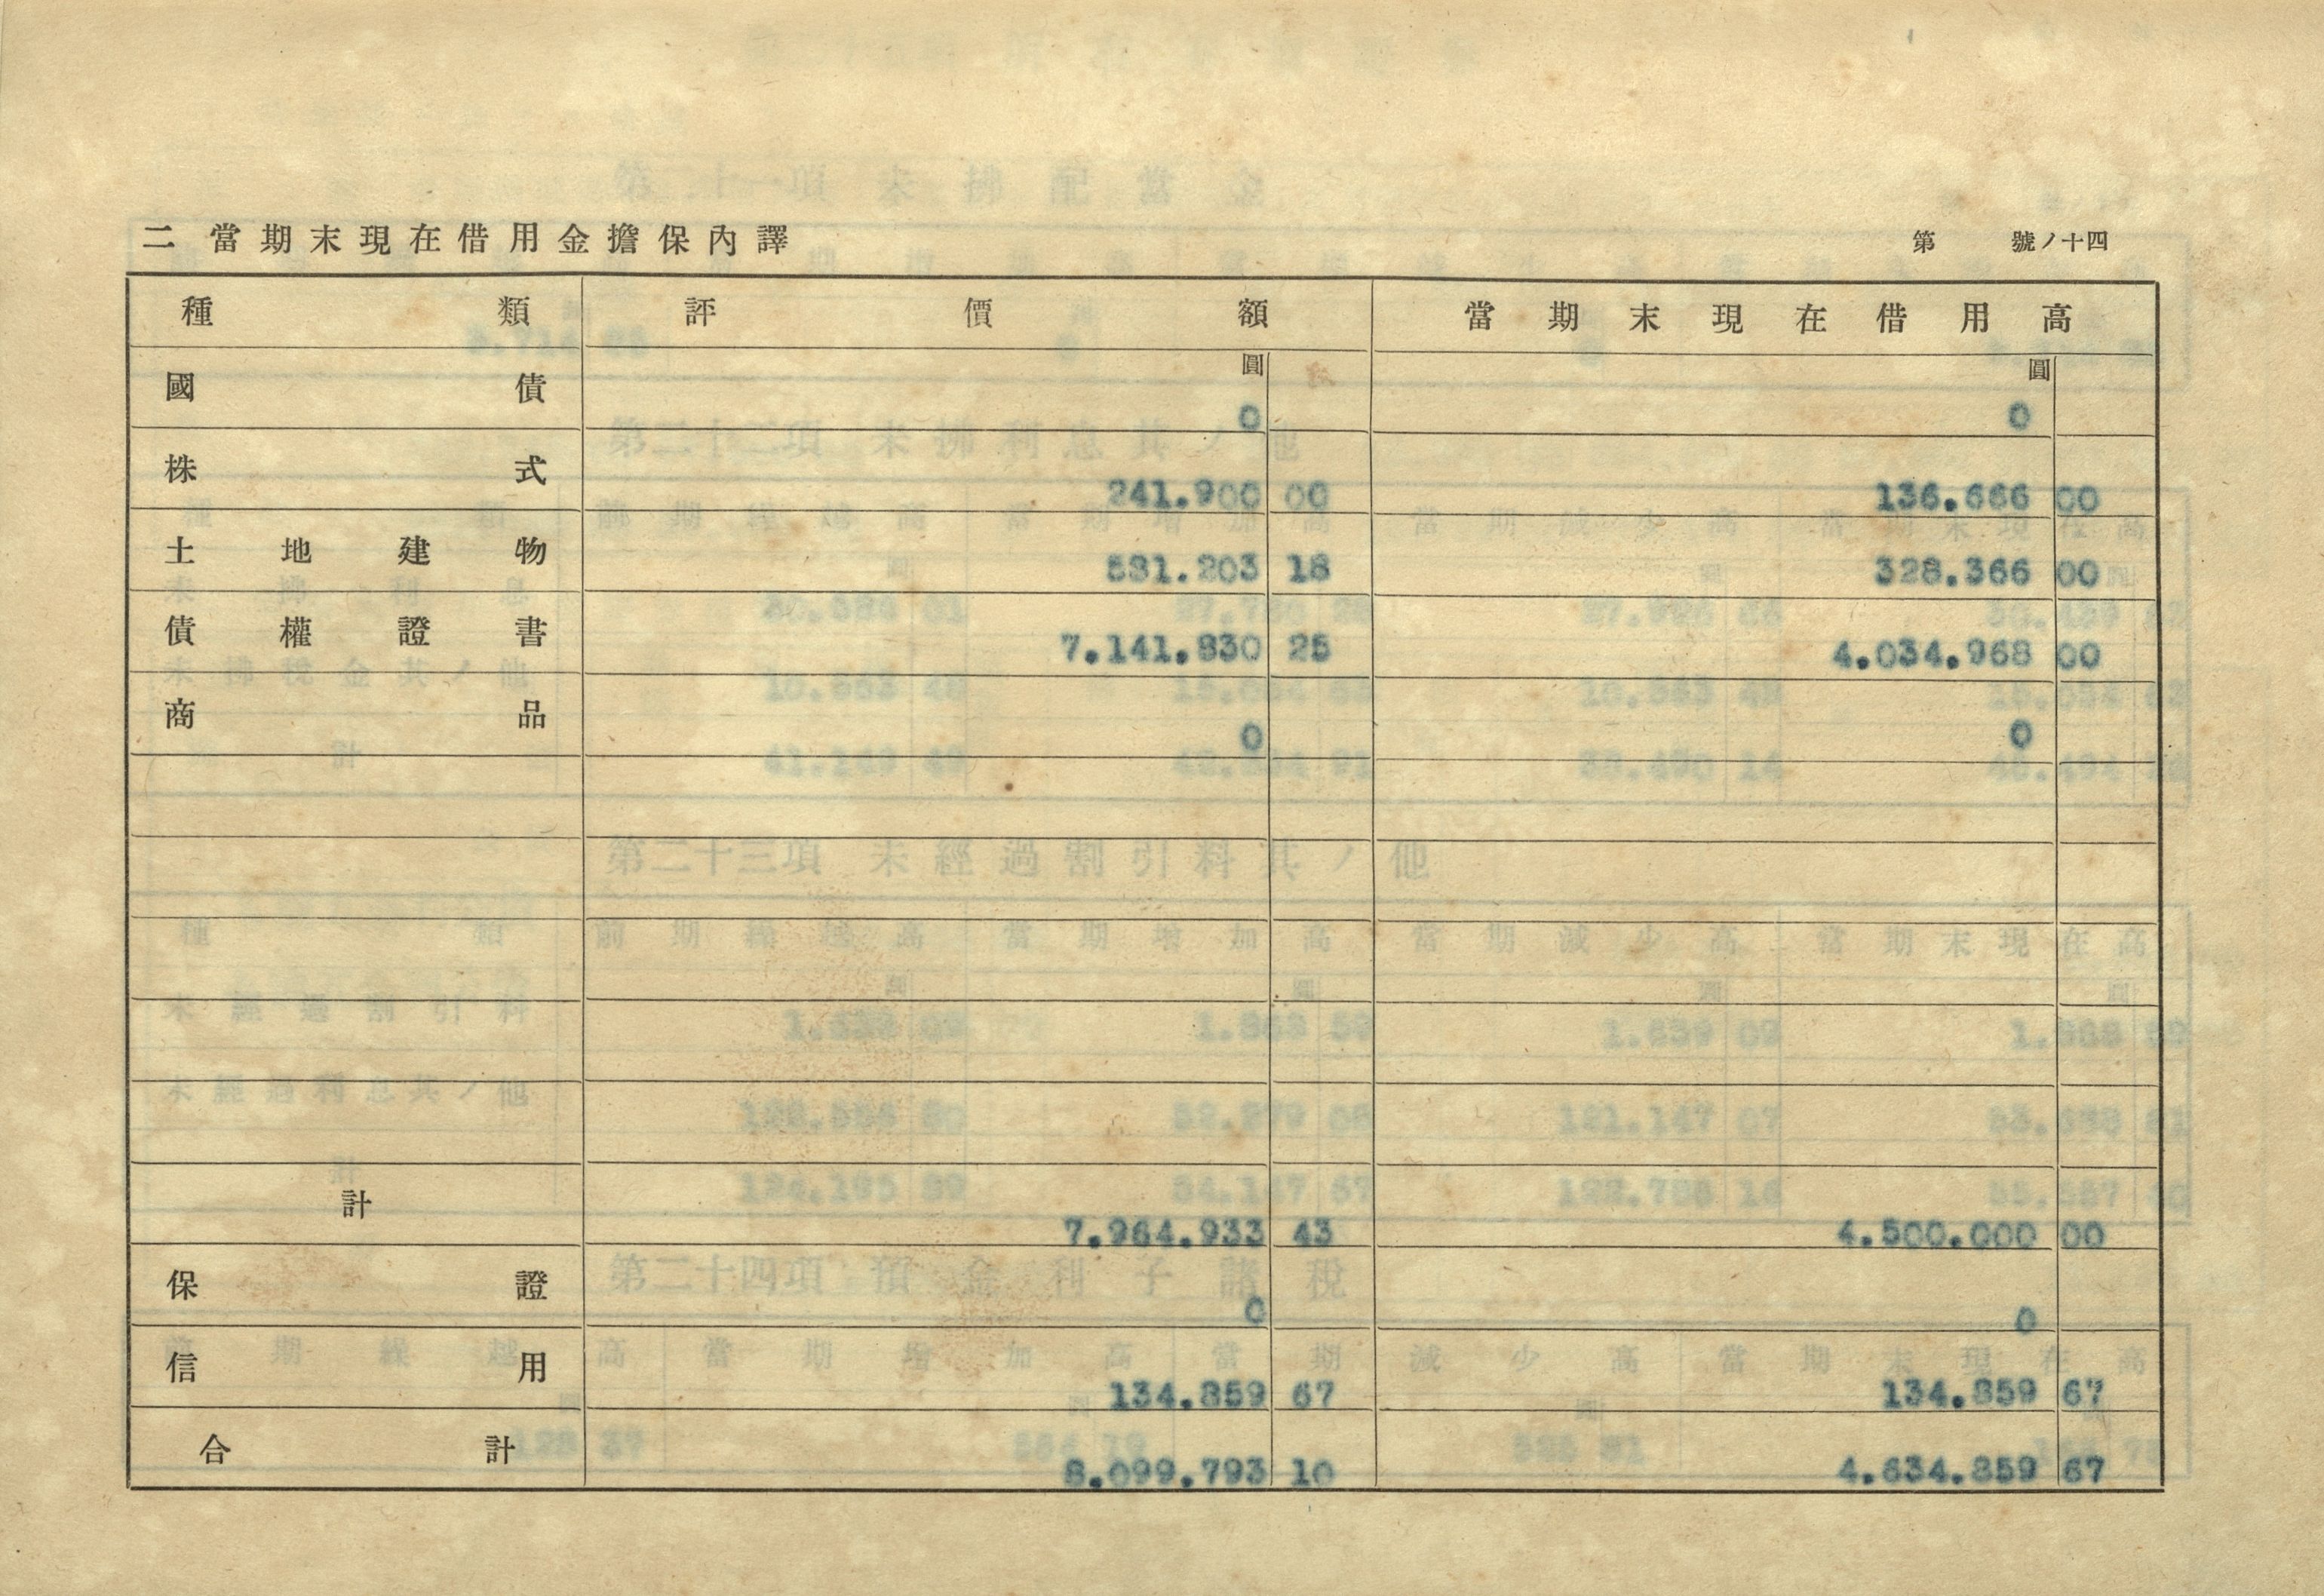 二 當期末現在借用金擔保內譯 第 號ノ十四
種類 評價額 當期末現在借用高
圓 圓
國債 0 0
株式 241.900 00 136.666 00
土地建物 581.203 18 328.366 00
債權證書 7.141.830 25 4.034.968 00
商品 0 0
計 7.964.933 43 4.500.000 00
保證 0 0
信用 134.859 67 134.859 67
合計 8.099.793 10 4.634.859 67